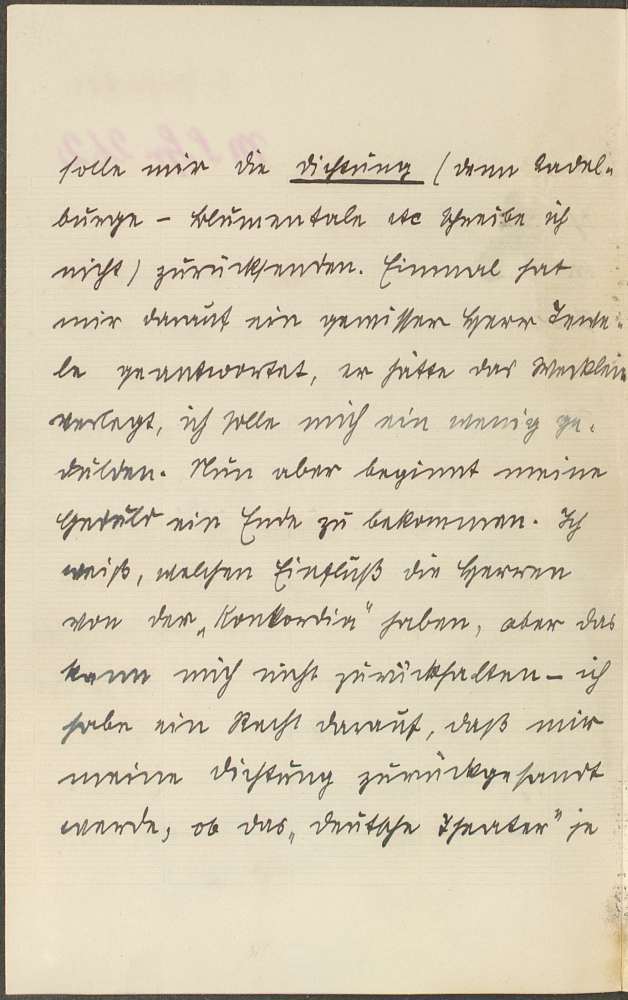 solle mir die Dichtung (denn Kadel-
burge – Blumentale etc schreibe ich
nicht) zurücksenden. Einmal hat
mir darauf ein gewisser Herr Tewe-
le geantwortet, er hätte das Werklein
verlegt, ich solle mich ein wenig ge-
dulden. Nun aber beginnt meine
Geduld ein Ende zu bekommen. Ich
weiß, welchen Einfluß die Herren
von der „Konkordia" haben, aber das
kann mich nicht zurückhalten – ich
habe ein Recht darauf, daß mir
meine Dichtung zurückgesandt
werde, ob das „Deutsche Theater" je